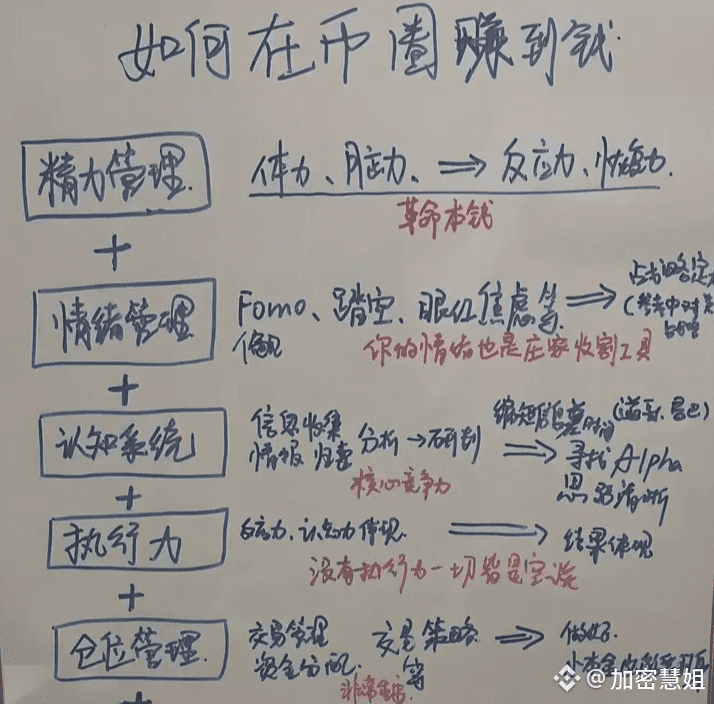 如何在币圈赚到钱
精力管理
体力、脑力、⇒ 反应力、恢复力
革命本钱
+
情绪管理
Fomo、踏空、眼红焦虑等 ⇒
偏见
你的情绪也是庄家收割工具
+
认知系统
信息收集
情报 归类 分析→研判 ⇒ 寻找Alpha
思路清晰
核心竞争力
+
执行力
反应力、认知力体现 ⇒ 结果体现
没有执行力一切皆是空谈
+
仓位管理
交易管理 交易策略 ⇒ 做好
资金分配 等
非常重要
+
@加密慧姐